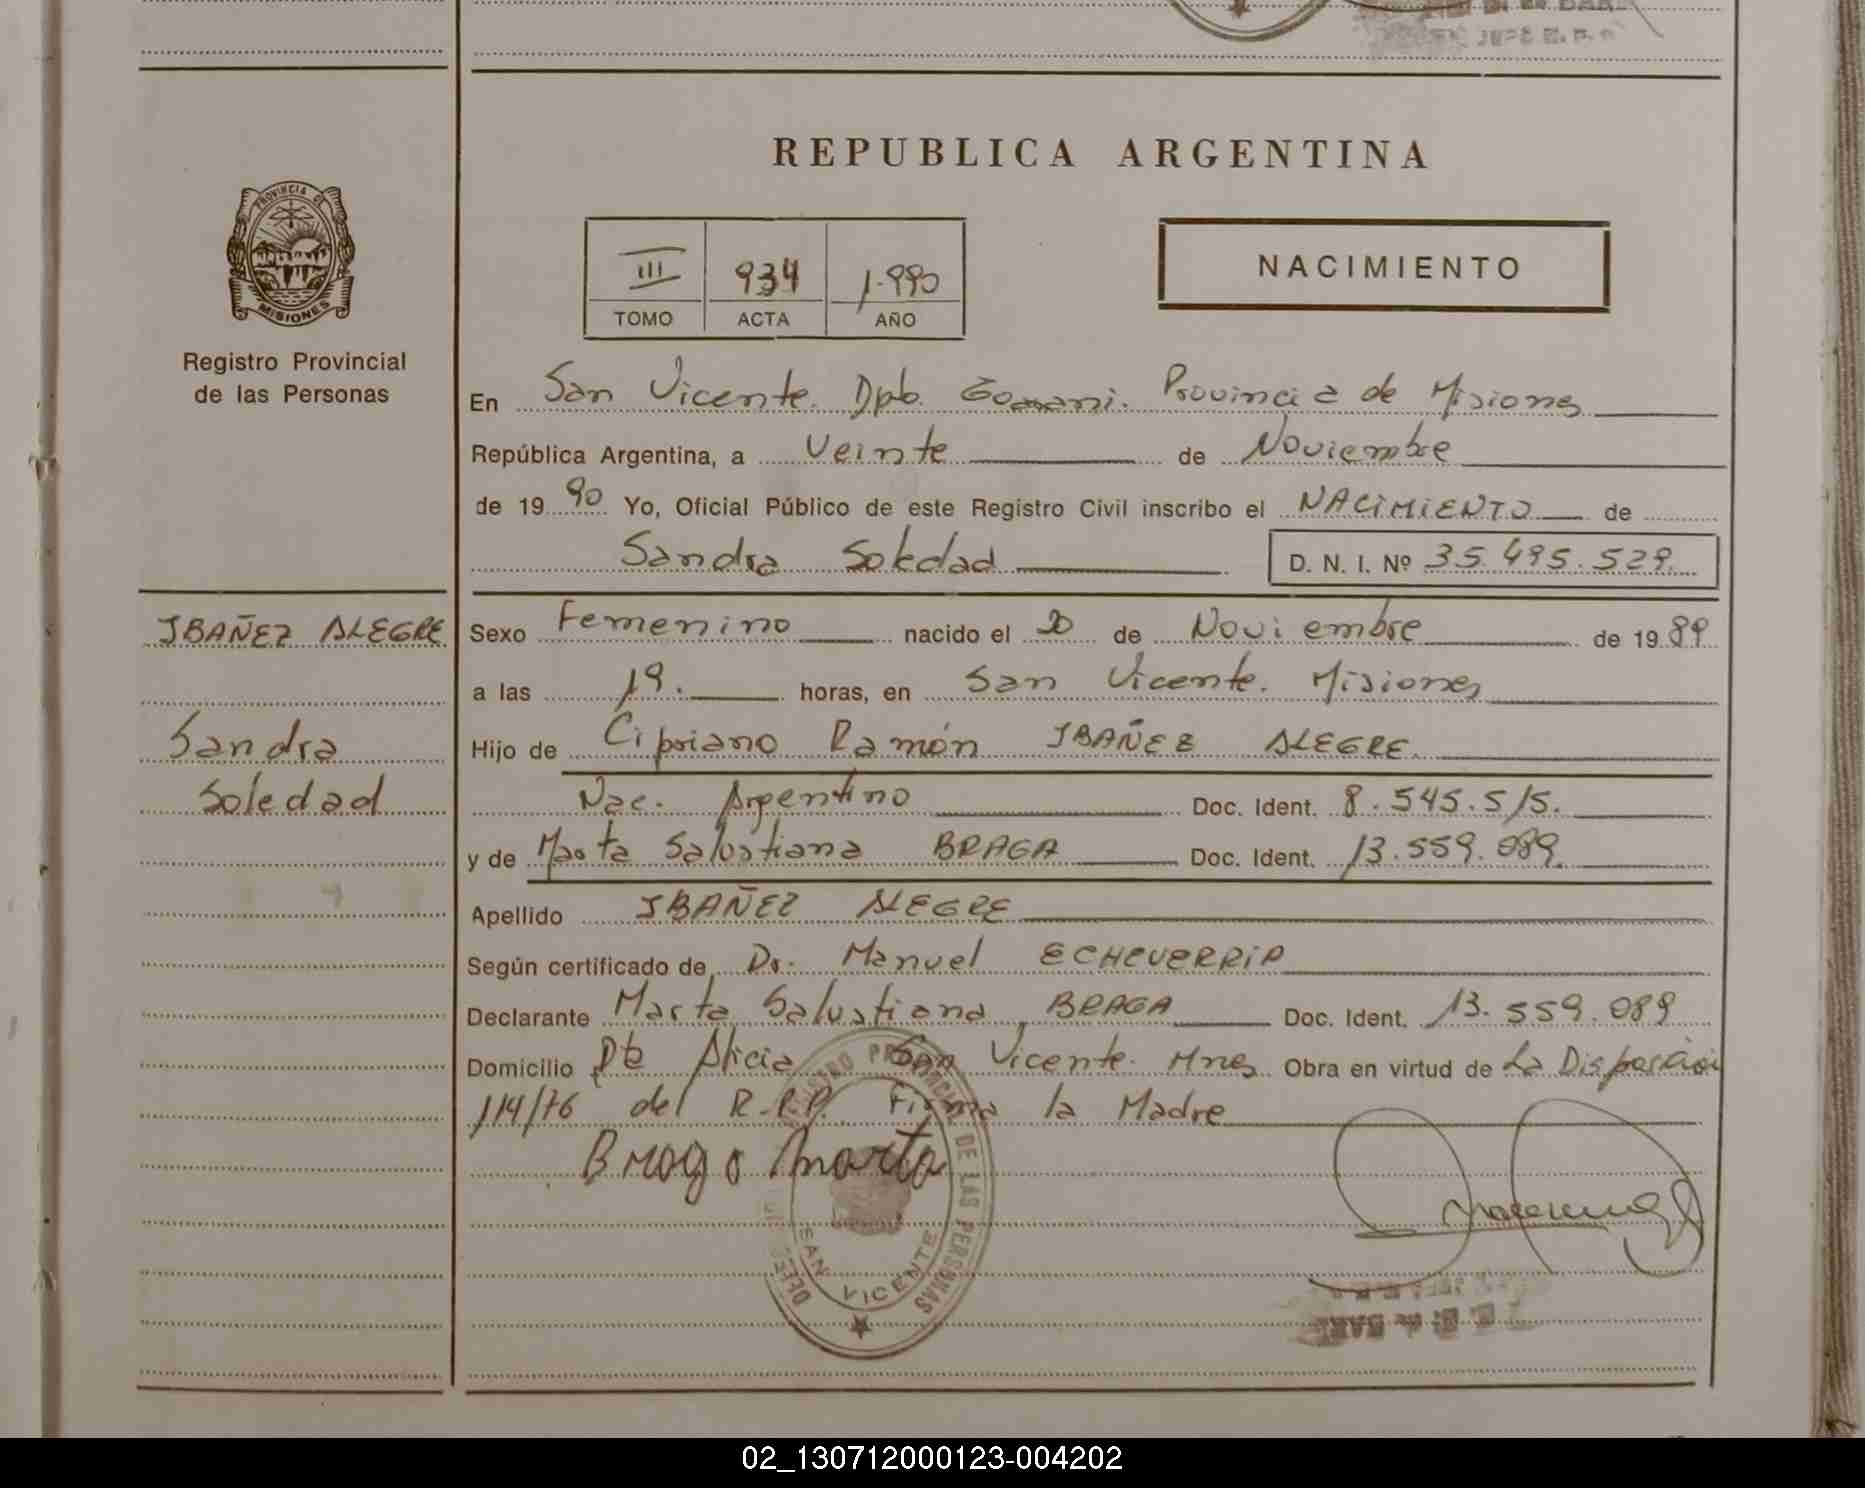 REPUBLICA ARGENTINA
PROVINCIA DE
MISIONES
Registro Provincial
de las Personas
III 934 1.990
TOMO ACTA AÑO
NACIMIENTO
En San Vicente. Dpto. Provincia de Misiones
República Argentina, a Veinte de Noviembre
de 1990 Yo, Oficial Público de este Registro Civil inscribo el NACIMIENTO de
Sandra Soledad D. N. I. Nº 35.495.529.
IBAÑEZ ALEGRE
Sandra
Soledad
Sexo Femenino nacido el 20 de Noviembre de 1989
a las 19. horas, en San Vicente. Misiones
Hijo de Cipriano Ramón IBAÑEZ ALEGRE
Nac. Argentino Doc. Ident. 8.545.515.
y de Marta Salustiana BRAGA Doc. Ident. 13.559.089.
Apellido IBAÑEZ ALEGRE
Según certificado de Dr. Manuel ECHEVERRIA
Declarante Marta Salustiana BRAGA Doc. Ident. 13.559.089
Domicilio Pto Alicia San Vicente. Mnes Obra en virtud de La Disposición
114/76 del R.P.P. Firma la Madre
Braga Marta
REGISTRO PROVINCIAL DE LAS PERSONAS
SAN VICENTE
02_130712000123-004202